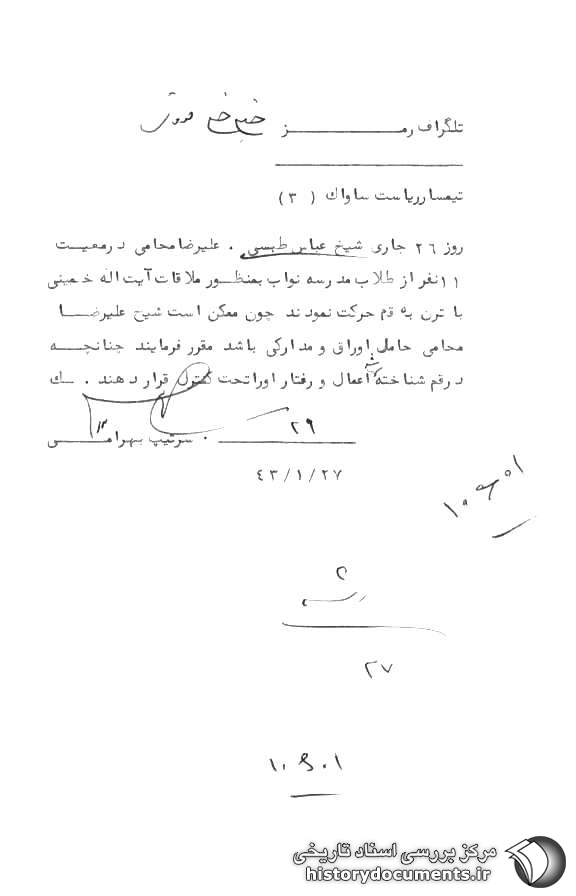 تلگراف رمز خیلی خیلی فوری
تیمسار ریاست ساواک ( ۳ )
روز ۲۶ جاری شیخ عباس طبسی . علیرضا محامی در معیت
۱۱ نفر از طلاب مدرسه نواب بمنظور ملاقات آیت اله خمینی
با ترن به قم حرکت نمودند چون ممکن است شیخ علیرضا
محامی حامل اوراق و مدارکی باشد مقرر فرمایند چنانچه
در قم شناخته شد اعمال و رفتار او را تحت کنترل قرار دهند .
۲۹
سرتیپ بهرامی
۴۳/۱/۲۷
۲۷
مرکز بررسی اسناد تاریخی
historydocuments.ir